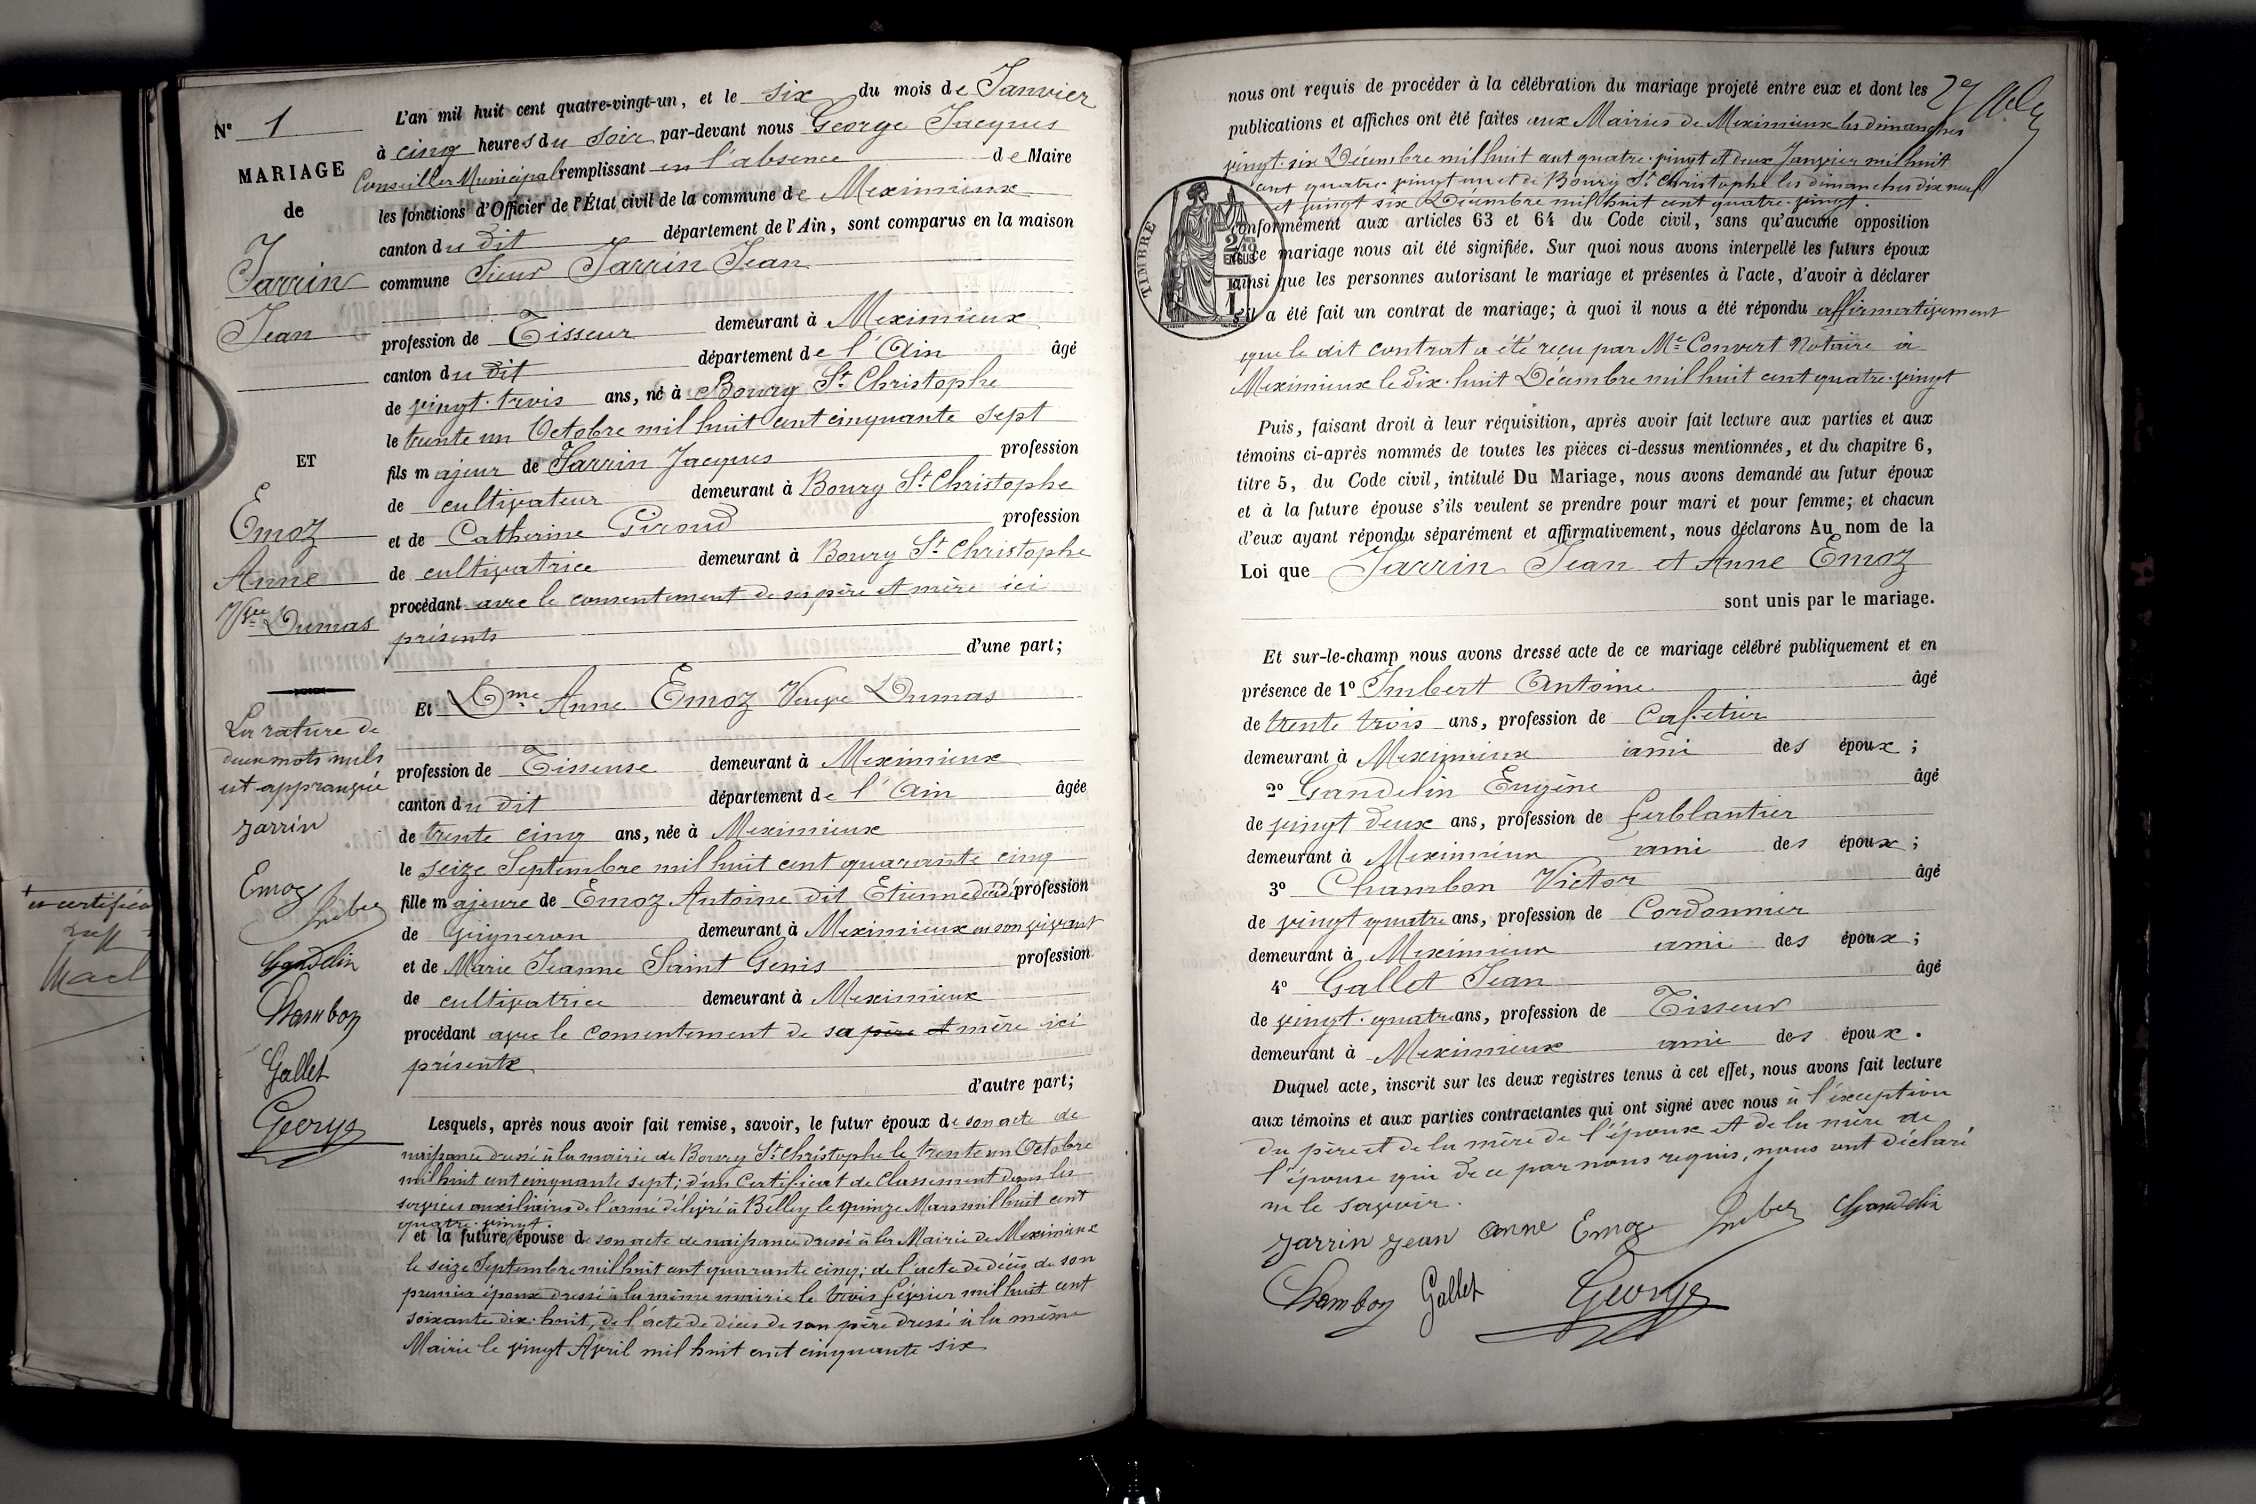 N° 1
MARIAGE
de
Jarrin
Jean
ET
Emoz
Anne
Vve Dumas
La rature de
deux mots nuls
est approuvée
Jarrin
Emoz
Imbert
Gandelin
Chambon
Gallet
George
L'an mil huit cent quatre-vingt-un, et le six du mois de Janvier
à cinq heures du soir par-devant nous George Jacques
Conseiller Municipal remplissant en l'absence de Maire
les fonctions d'Officier de l'État civil de la commune de Meximieux
canton du dit département de l'Ain, sont comparus en la maison
commune Sieur Jarrin Jean
profession de Tisseur demeurant à Meximieux
canton du dit département de l'Ain âgé
de vingt-trois ans, né à Bourg St Christophe
le trente un Octobre mil huit cent cinquante sept
fils majeur de Jarrin Jacques profession
de cultivateur demeurant à Bourg St Christophe
et de Catherine Giroud profession
de cultivatrice demeurant à Bourg St Christophe
procédant avec le consentement de ses père et mère ici
présents
d'une part;
Et Dme Anne Emoz Veuve Dumas
profession de Tisseuse demeurant à Meximieux
canton du dit département de l'Ain âgée
de trente cinq ans, née à Meximieux
le seize Septembre mil huit cent quarante cinq
fille majeure de Emoz Antoine dit Etienne décédé profession
de vigneron demeurant à Meximieux en son vivant
et de Marie Jeanne Saint Genis profession
de cultivatrice demeurant à Meximieux
procédant avec le consentement de sa père et mère ici
présente
d'autre part;
Lesquels, après nous avoir fait remise, savoir, le futur époux de son acte de
naissance dressé à la mairie de Bourg St Christophe le trente un Octobre
mil huit cent cinquante sept; d'un Certificat de Classement dans les
services auxiliaires de l'armée délivré à Belley le quinze Mars mil huit cent
quatre-vingt.
et la future épouse de son acte de naissance dressé à la Mairie de Meximieux
le seize Septembre mil huit cent quarante cinq; de l'acte de décès de son
premier époux dressé à la même mairie le trois février mil huit cent
soixante dix-huit, de l'acte de décès de son père dressé à la même
Mairie le vingt Avril mil huit cent cinquante six
nous ont requis de procéder à la célébration du mariage projeté entre eux et dont les
publications et affiches ont été faites aux Mairies de Meximieux les dimanches
vingt-six Décembre mil huit cent quatre-vingt et deux Janvier mil huit
cent quatre-vingt un et de Bourg St Christophe les dimanches dix neuf
et vingt six Décembre mil huit cent quatre-vingt.
conformément aux articles 63 et 64 du Code civil, sans qu'aucune opposition
à ce mariage nous ait été signifiée. Sur quoi nous avons interpellé les futurs époux
ainsi que les personnes autorisant le mariage et présentes à l'acte, d'avoir à déclarer
s'il a été fait un contrat de mariage; à quoi il nous a été répondu affirmativement
que le dit contrat a été reçu par Me Convert Notaire à
Meximieux le dix-huit Décembre mil huit cent quatre-vingt
TIMBRE
Puis, faisant droit à leur réquisition, après avoir fait lecture aux parties et aux
témoins ci-après nommés de toutes les pièces ci-dessus mentionnées, et du chapitre 6,
titre 5, du Code civil, intitulé Du Mariage, nous avons demandé au futur époux
et à la future épouse s'ils veulent se prendre pour mari et pour femme; et chacun
d'eux ayant répondu séparément et affirmativement, nous déclarons Au nom de la
Loi que Jarrin Jean et Anne Emoz
sont unis par le mariage.
Et sur-le-champ nous avons dressé acte de ce mariage célébré publiquement et en
présence de 1° Imbert Antoine âgé
de trente trois ans, profession de Cafetier
demeurant à Meximieux ami des époux;
2° Gandelin Eugène âgé
de vingt deux ans, profession de ferblantier
demeurant à Meximieux ami des époux;
3° Chambon Victor âgé
de vingt quatre ans, profession de Cordonnier
demeurant à Meximieux ami des époux;
4° Gallet Jean âgé
de vingt-quatre ans, profession de Tisseur
demeurant à Meximieux ami des époux.
Duquel acte, inscrit sur les deux registres tenus à cet effet, nous avons fait lecture
aux témoins et aux parties contractantes qui ont signé avec nous à l'exception
du père et de la mère de l'époux et de la mère de
l'épouse qui de ce par nous requis, nous ont déclaré
ne le savoir.
Jarrin Jean Anne Emoz Imbert Gandelin
Chambon Gallet George